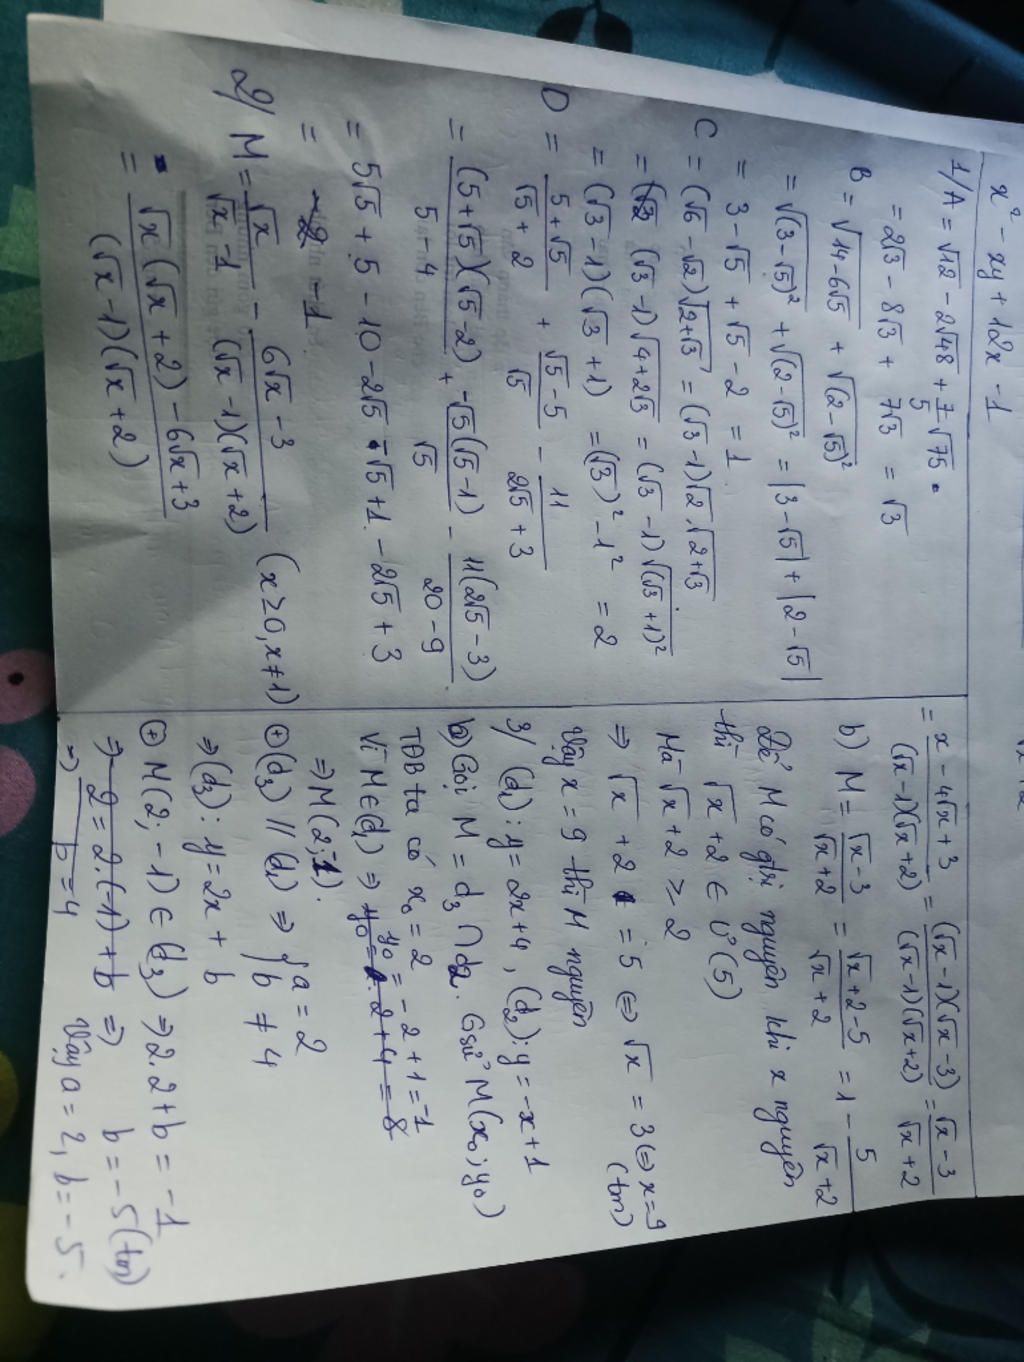 x² - xy + 12x - 1
1/ A = √12 - 2√48 + 7/5 √75
= 2√3 - 8√3 + 7√3 = √3
B = √(14-6√5) + √((2-√5)²)
= √((3-√5)²) + √((2-√5)²) = |3-√5| + |2-√5|
= 3 - √5 + √5 - 2 = 1
C = (√6 - √2)√(2+√3) = (√3 - 1)√2.√(2+√3)
= (√3 - 1)√(4+2√3) = (√3 - 1)√((√3+1)²)
= (√3 - 1)(√3 + 1) = (√3)² - 1² = 2
D = (5+√5)/(√5+2) + (√5-5)/√5 - 11/(2√5+3)
= (5+√5)(√5-2)/(5-4) + -√5(√5-1)/√5 - 11(2√5-3)/(20-9)
= 5√5 + 5 - 10 - 2√5 - √5 + 1 - 2√5 + 3
= -1
2/ M = √x/(√x-1) - (6√x-3)/((√x-1)(√x+2)) (x≥0, x≠1)
= (√x(√x+2) - 6√x+3)/((√x-1)(√x+2))
= (x-4√x+3)/((√x-1)(√x+2)) = ((√x-1)(√x-3))/((√x-1)(√x+2)) = (√x-3)/(√x+2)
b) M = (√x-3)/(√x+2) = (√x+2-5)/(√x+2) = 1 - 5/(√x+2)
Để M có gtrị nguyên khi x nguyên
thì √x + 2 ∈ Ư(5)
Mà √x + 2 ≥ 2
⇒ √x + 2 = 5 ⇔ √x = 3 ⇔ x = 9
(tm)
Vậy x = 9 thì M nguyên
3/ (d₁): y = 2x + 4, (d₂): y = -x + 1
b) Gọi M = d₃ ∩ d₂. Gsử M(x₀; y₀)
TĐB ta có x₀ = 2
Vì M ∈ (d₁) ⇒ y₀ = -2 + 1 = -1
y₀ = 2 + 4 = 8
⇒ M(2; -1).
⊕ (d₃) // (d₁) ⇒ { a = 2
b ≠ 4
⇒ (d₃): y = 2x + b
⊕ M(2; -1) ∈ (d₃) ⇒ 2.2 + b = -1
⇒ 2 = 2.(-1) + b ⇒ b = -5 (tm)
⇒ b = 4 Vậy a = 2, b = -5.